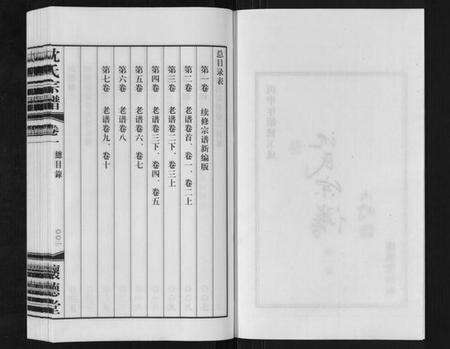 总目录表
第一卷 续修宗谱新编版
第二卷 老谱卷首、卷一、卷二上
第三卷 老谱卷二下、卷三上
第四卷 老谱卷三下、卷四、卷五
第五卷 老谱卷六、卷七
第六卷 老谱卷八
第七卷 老谱卷九、卷十
沈氏宗谱
卷一
總目錄
懷德堂